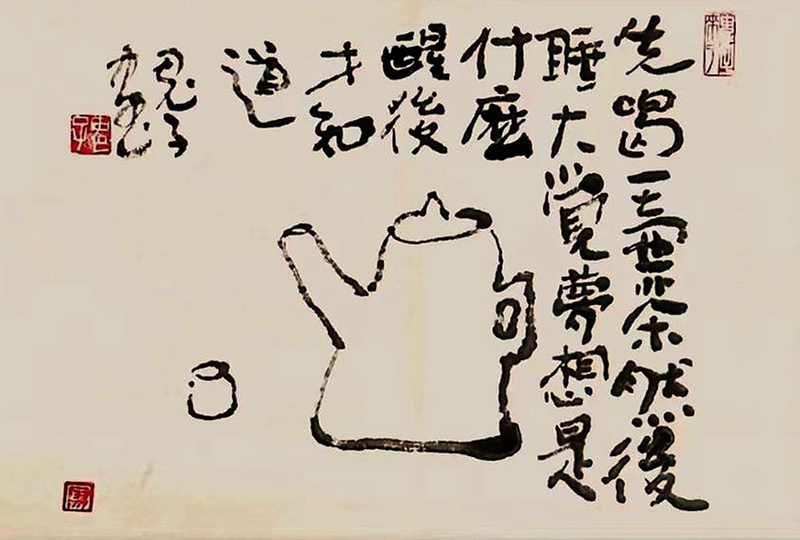 先喝一壺茶然後
睡大覺夢想是
什麼
醒後
才知
道